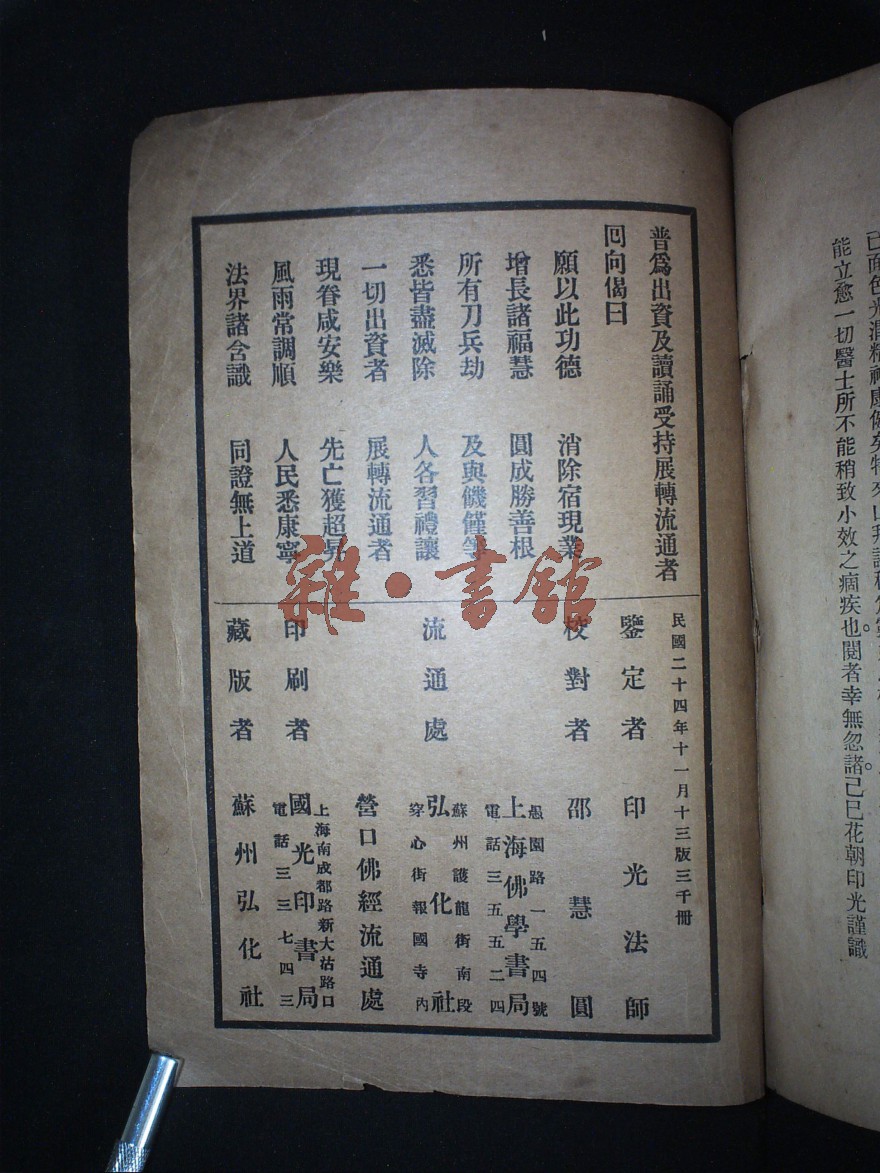 能立愈一切醫士所不能稍致小效之痼疾也。閱者幸無忽諸。己巳花朝印光謹識
普爲出資及讀誦受持展轉流通者
囘向偈曰
願以此功德 消除宿現業
增長諸福慧 圓成勝善根
所有刀兵劫 及與饑饉等
悉皆盡滅除 人各習禮讓
一切出資者 展轉流通者
現眷咸安樂 先亡獲超昇
風雨常調順 人民悉康寧
法界諸含識 同證無上道
民國二十四年十一月十三版三千冊
鑒定者 印光法師
校對者 邵慧圓
流通處
愚園路一五四號
上海佛學書局
電話三五五二四
蘇州護龍街南段
弘化社
穿心街報國寺內
營口佛經流通處
印刷者
上海南成都路新大沽路口
國光印書局
電話三三七四三
藏版者 蘇州弘化社
雜·書館